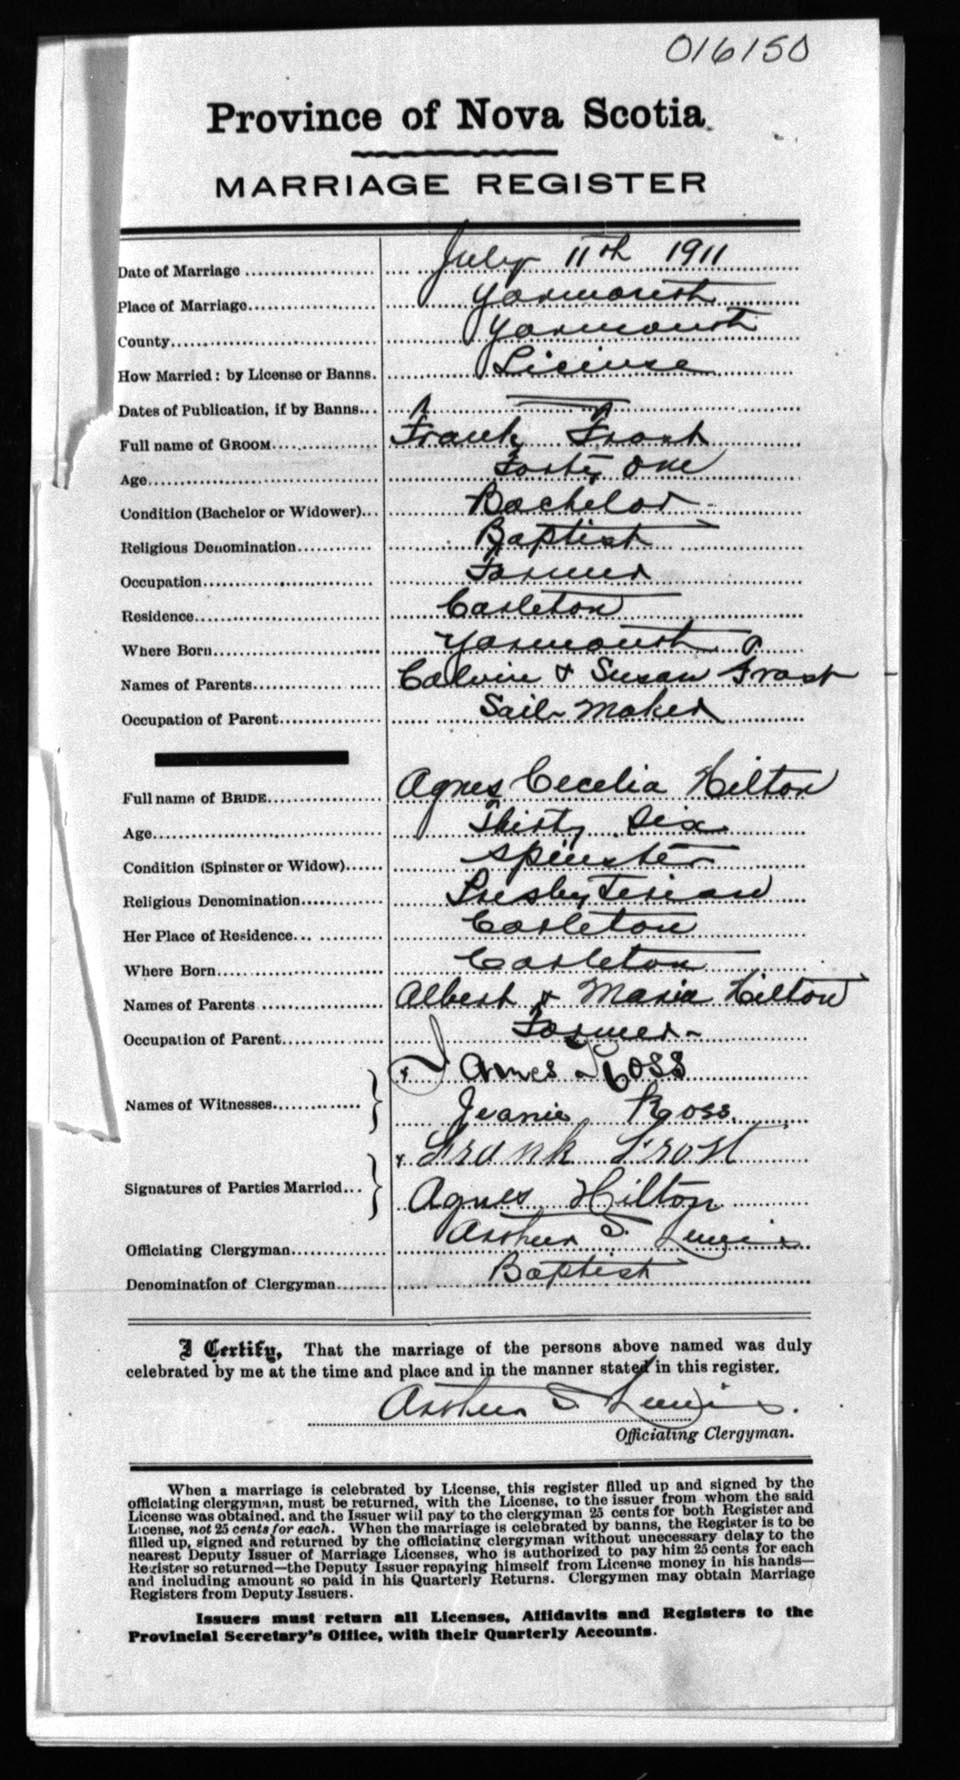 016150
Province of Nova Scotia
MARRIAGE REGISTER
Date of Marriage July 11th 1911
Place of Marriage Yarmouth
County Yarmouth
How Married: by License or Banns. License
Dates of Publication, if by Banns
Full name of GROOM Frank Frost
Age Forty One
Condition (Bachelor or Widower) Bachelor
Religious Denomination Baptist
Occupation Farmer
Residence Carleton
Where Born Yarmouth
Names of Parents Calvin & Susan Frost
Occupation of Parent Sail Maker
Full name of BRIDE Agnes Cecelia Hilton
Age Thirty Six
Condition (Spinster or Widow) Spinster
Religious Denomination Presbyterian
Her Place of Residence Carleton
Where Born Carleton
Names of Parents Albert & Maria Hilton
Occupation of Parent Farmer
James Ross
Names of Witnesses
Jeanie Ross
Frank Frost
Signatures of Parties Married
Agnes Hilton
Officiating Clergyman Arthur S. Lewis
Denomination of Clergyman Baptist
I Certify, That the marriage of the persons above named was duly
celebrated by me at the time and place and in the manner stated in this register.
Arthur S Lewis.
Officiating Clergyman.
When a marriage is celebrated by License, this register filled up and signed by the
officiating clergyman, must be returned, with the License, to the issuer from whom the said
License was obtained, and the Issuer will pay to the clergyman 25 cents for both Register and
License, not 25 cents for each. When the marriage is celebrated by banns, the Register is to be
filled up, signed and returned by the officiating clergyman without unnecessary delay to the
nearest Deputy Issuer of Marriage Licenses, who is authorized to pay him 25 cents for each
Register so returned—the Deputy Issuer repaying himself from License money in his hands—
and including amount so paid in his Quarterly Returns. Clergymen may obtain Marriage
Registers from Deputy Issuers.
Issuers must return all Licenses, Affidavits and Registers to the
Provincial Secretary's Office, with their Quarterly Accounts.